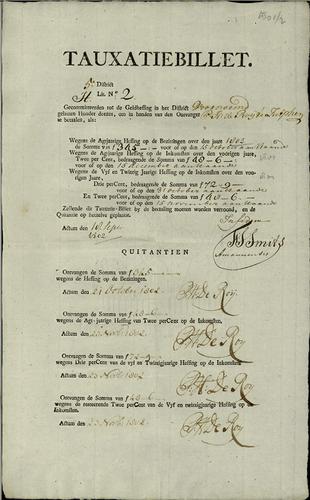 TAUXATIEBILLET.
5e District
H Lit. No 2
Gecommitteerden tot de Geldheffing in het District
gelasten Houder dezes, om in handen van den Ontvanger
te betaalen, als:
Wegens de Agtjaarige Heffing op de Bezittingen over den jaare 1802
de Somma van ƒ 1345 - voor of op den 15 October aanstaande
Wegens de Agtjaarige Heffing op de Inkomsten over den voorigen jaare,
Twee per Cent, bedraagende de Somma van ƒ 140-6-
voor of op den 15 December aanstaande
Wegens de Vyf en Twintig Jaarige Heffing op de Inkomsten over den voorigen Jaare,
Drie perCent, bedraagende de Somma van ƒ 172-9-
voor of op den 31 October aanstaande
En Twee perCent, bedraagende de Somma van ƒ 140-6-
voor of op den 15 November aanstaande
Zullende dit Tauxatie-Billet by de betaaling moeten worden vertoond, en de
Quitantie op hetzelve geplaatst.
Actum den 16 Sept
1802
Smits
QUITANTIEN
Ontvangen de Somma van ƒ 1345 -
wegens de Heffing op de Bezittingen.
Actum den 21 October 1802
PH De Roy
Ontvangen de Somma van ƒ
wegens de Agt-jaarige Heffing van Twee perCent op de Inkomsten.
Actum den 1802
PH De Roy
Ontvangen de Somma van ƒ 172-9-
wegens Drie perCent van de vyf en twintigjaarige Heffing op de Inkomsten
Actum den 23 Novb 1802
PH De Roy
Ontvangen de Somma van ƒ 140-6-
wegens de resteerende Twee perCent van de Vyf en twintigjaarige Heffing op de
Inkomsten.
Actum den 23 Novb 1802
PH De Roy